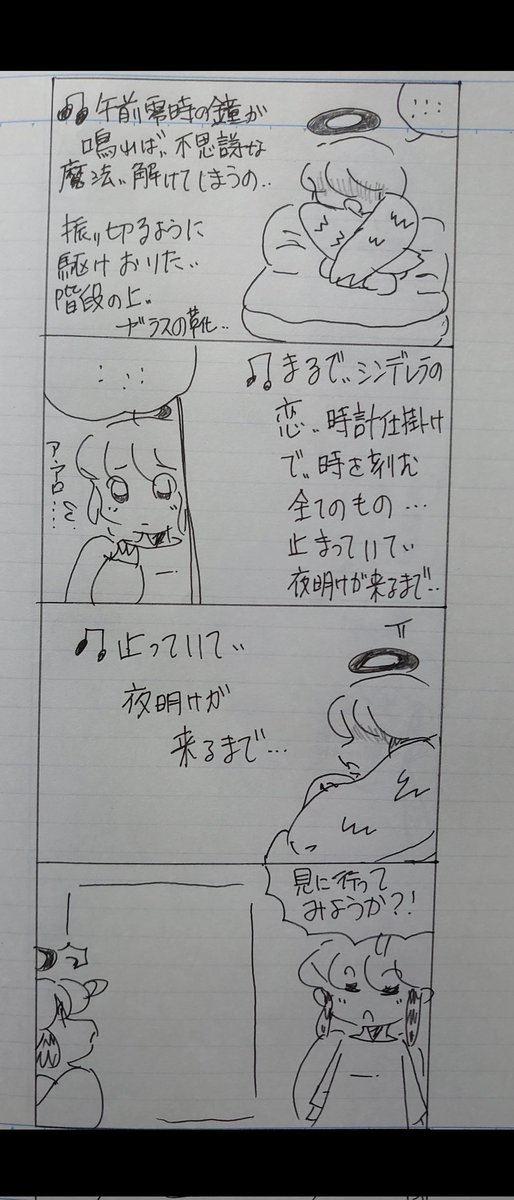 ♫ 午前零時の鐘が
鳴れば、不思議な
魔法、解けてしまうの‥
振り切るように
駆けおりた‥
階段の上。
ガラスの靴‥
…
♫ まるで‥シンデレラの
恋‥時計仕掛け
で‥時を刻む
全てのもの…
止まっていて‥
夜明けが来るまで‥
…
♫ 止っていて‥
夜明けが
来るまで…
見に行って
みようか?!